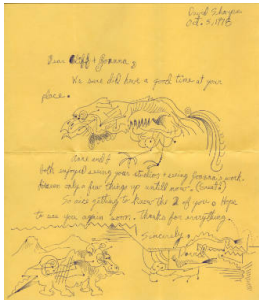 Oct. 5, 1978
Dear Cliff + Joanna,
We sure did have a good time at your
place.
and I
both enjoyed seeing your studios + seeing Joanna's work.
only a few things up untill now.
So nice getting to know the 2 of you. Hope
to see you again soon. Thanks for everything.
Sincerely,